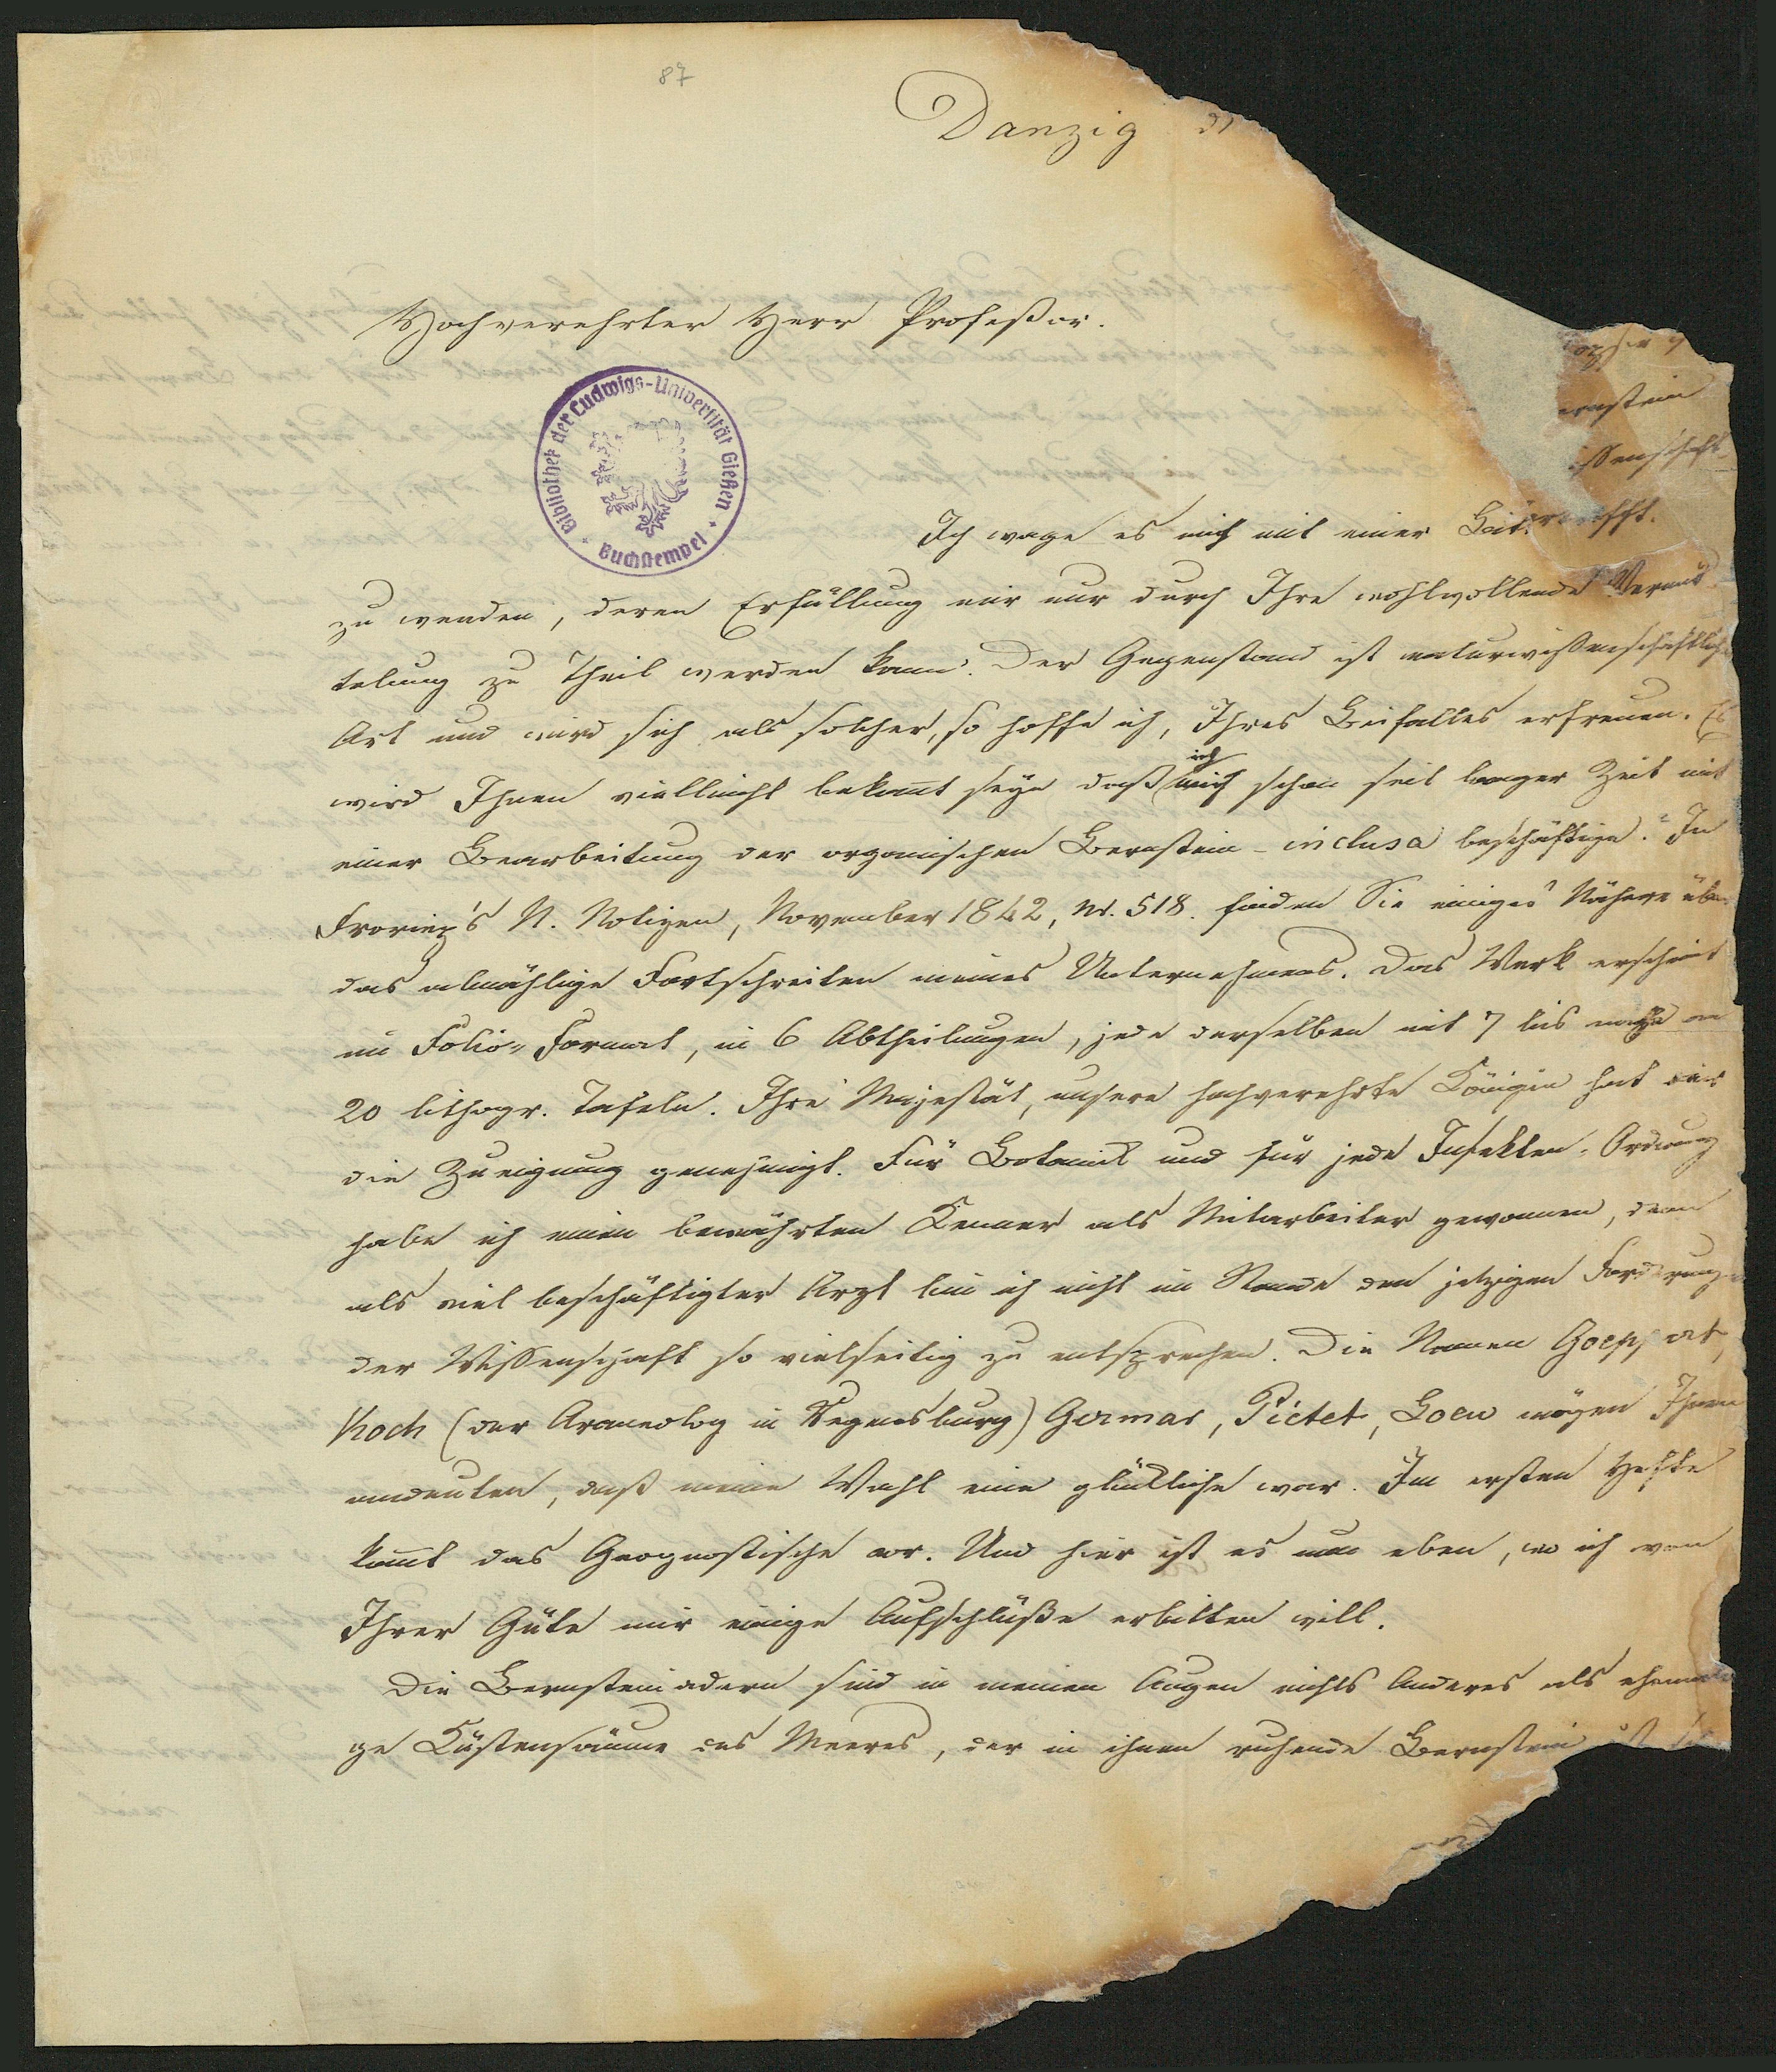 87
Danzig
Hochverehrter Herr Profeßor.
Bibliothek der Ludwigs-Universität Gießen
Buchstempel
ernstein
issenschaft
Ich wage es mich mit einer
zu wenden, deren Erfüllung mir nur durch Ihre wohlwollende Vermit
telung zu Theil werden kann. Der Gegenstand ist naturwißenschaftlich
Art und wird sich als solcher, so hoffe ich, Ihres Beifalles erfreuen. Es
wird Ihnen vielleicht bekan̄t seyn daß ich mich schon seit langer Zeit mit
einer Bearbeitung der organischen Bernstein-inclusa beschäftige. In
Froriep's N. Notizen, November 1842, Nr. 518. finden Sie einiges Nähere über
das almählige Fortschreiten meines Unternehmens. Das Werk erscheint
im Folio-Format, in 6 Abtheilungen, jede derselben mit 7 bis nahe an
20 lithogr. Tafeln. Ihre Majestät, unsere hochverehrte Königin hat mir
die Zueignung genehmigt. Für Botanik und für jede Insekten-Ordnung
habe ich einen bewährten Kenner als Mitarbeiter gewonnen, denn
als viel beschäftigter Arzt bin ich nicht im Stande den jetzigen Forderunge
der Wissenschaft so vielseitig zu entsprechen. Die Namen Goeppert,
Koch (der Araneolog in Regensburg) Germar, Pictet, Loew mögen Ihnen
andeuten, daß meine Wahl eine glückliche war. Im ersten Hefte
kom̄t das Geognostische vor. Und hier ist es nun eben, wo ich von
Ihrer Güte mir einige Aufschlüße erbitten will.
Die Bernsteinadern sind in meinen Augen nichts Anderes als ehemali
ge Küstensäume des Meeres, der in ihnen ruhende Bernstein ist